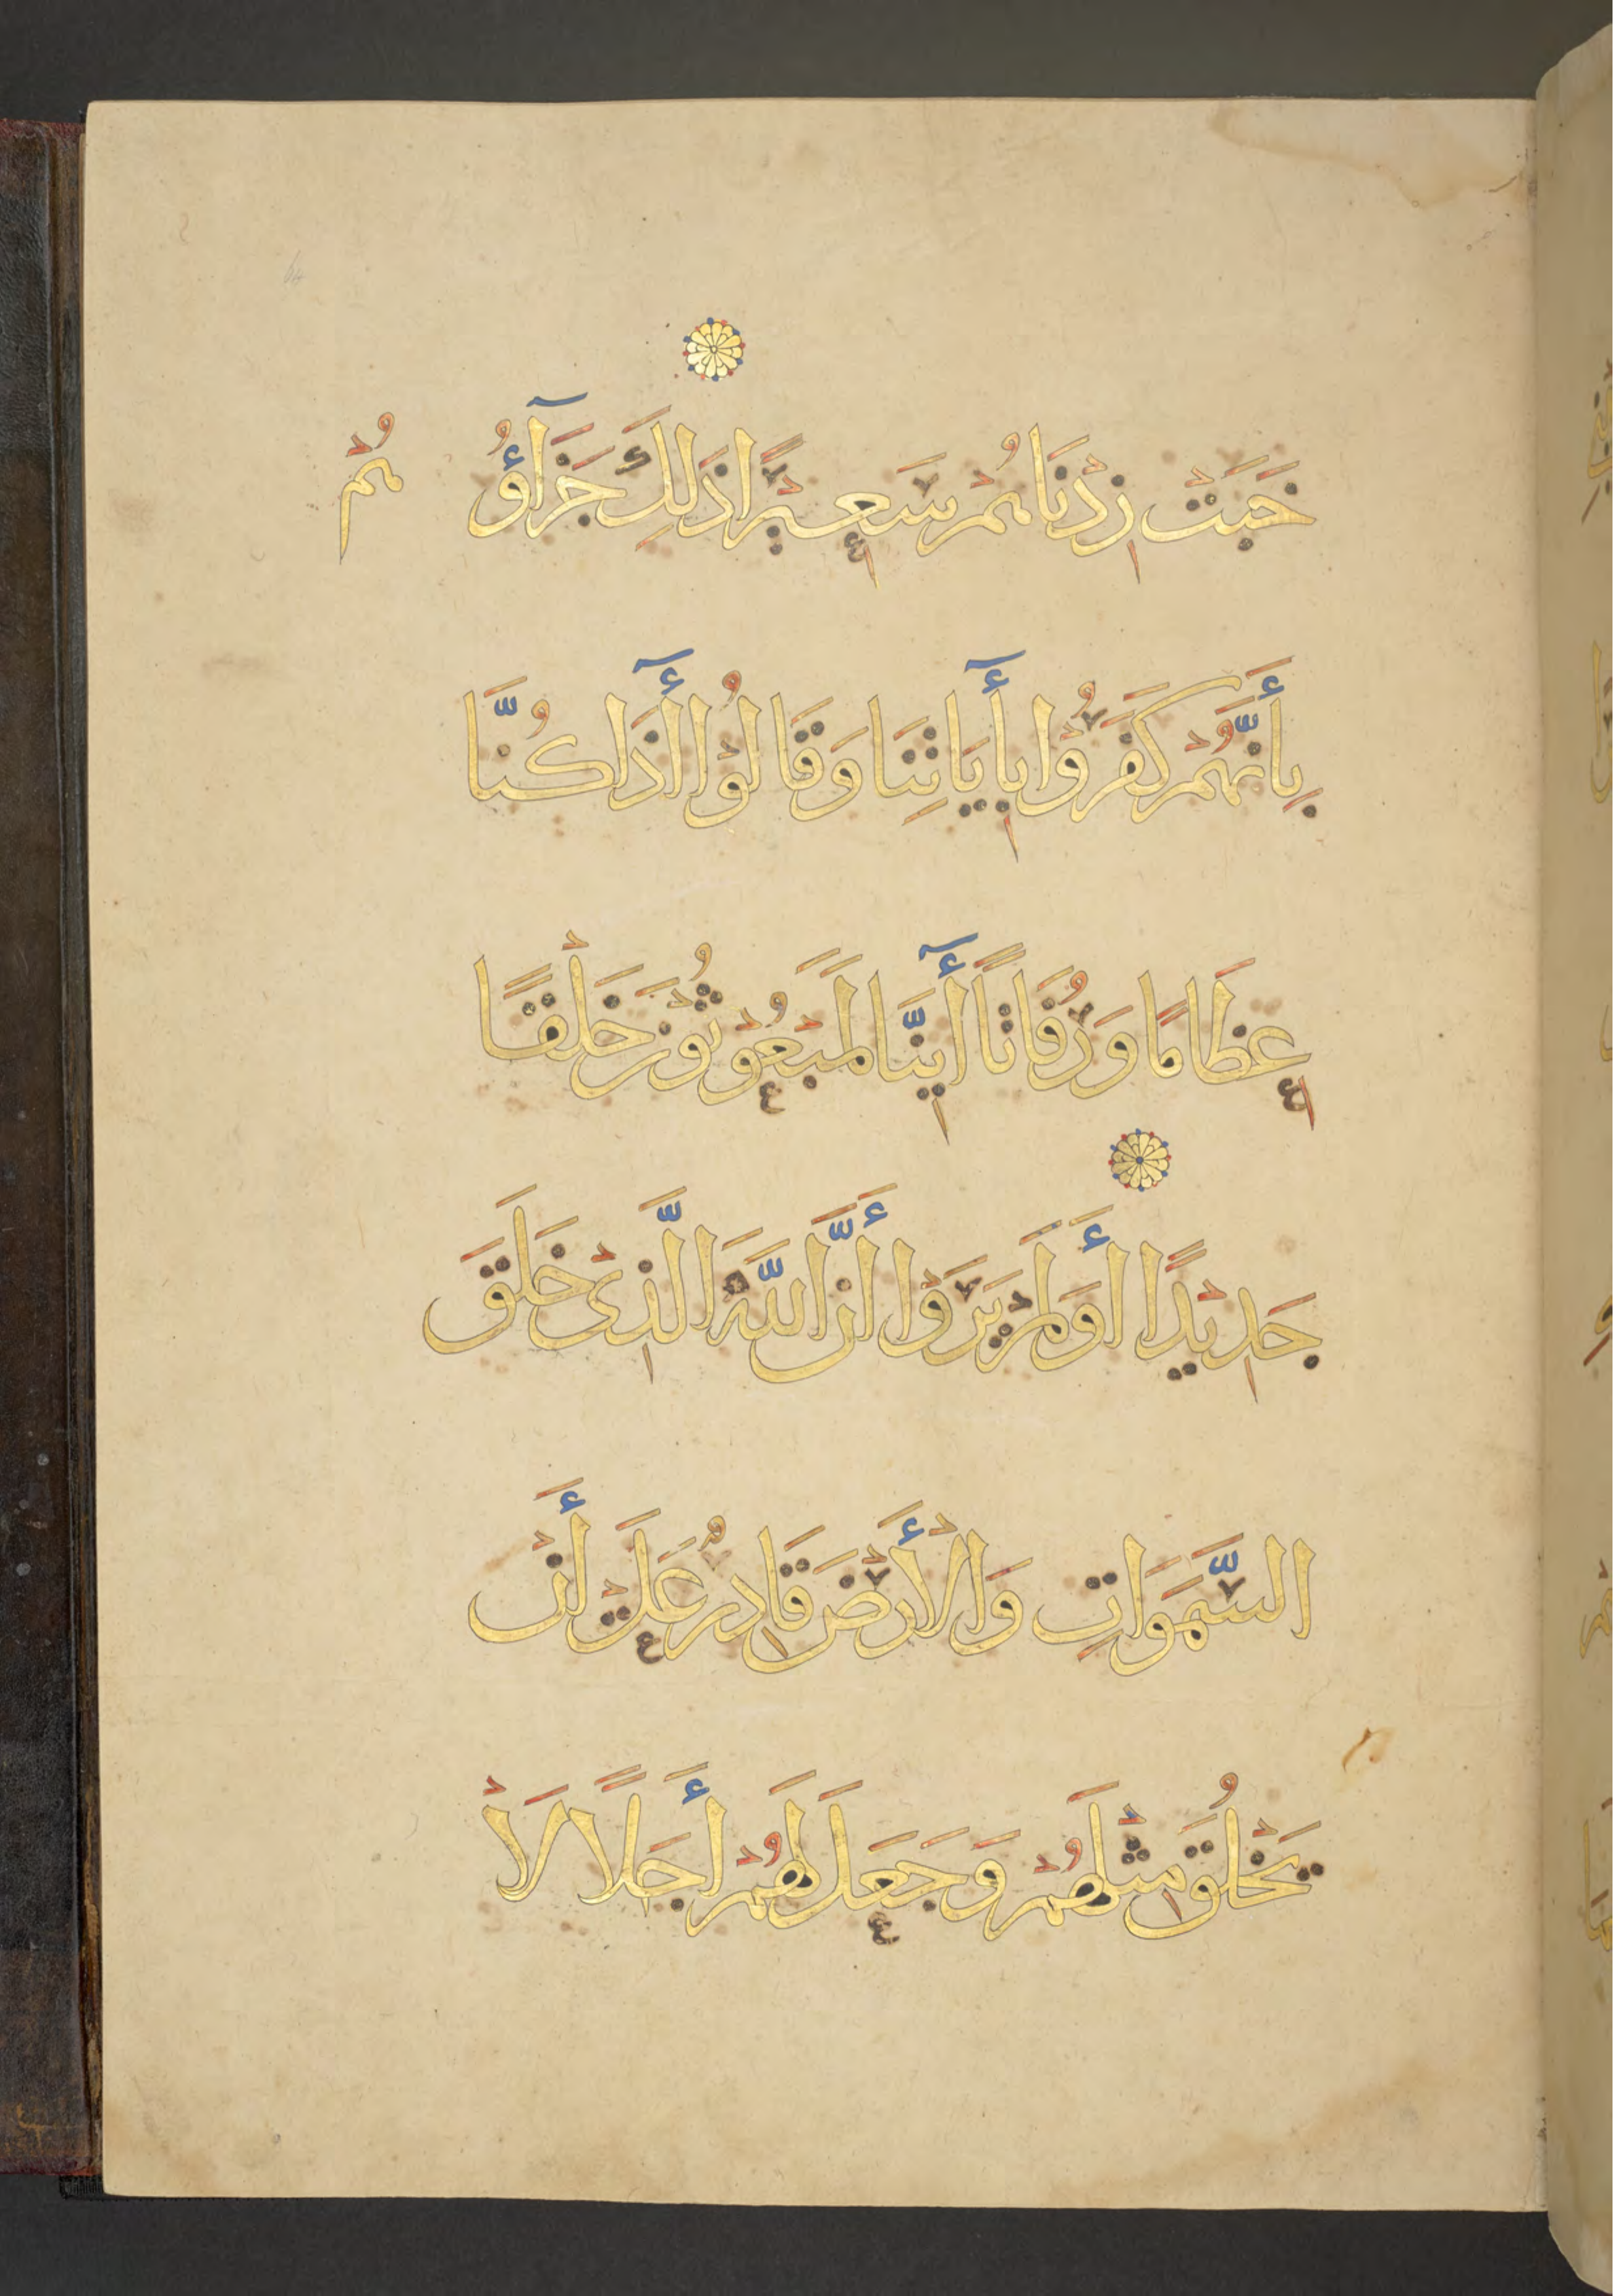 خَبَتْ زِدْنَاهُمْ سَعِيْرًا ذَلِكَ جَزَآؤُهُمْ
بِأَنَّهُمْ كَفَرُوْا بِأٓيَاتِنَا وَقَالُوْا أَٓئِذَا كُنَّا
عِظَامًا وَرُفَاتًا أَٓيِنَّا لَمَبْعُوْثُوْنَ خَلْقًا
جَدِيْدًا أَوَلَمْ يَرَوْا أَنَّ اللَّهَ الَّذِىْ خَلَقَ
السَّمَوَاتِ وَالْأَرْضَ قَادِرٌ عَلَىْ أَنْ
يَخْلُقَ مِثْلَهُمْ وَجَعَلَ لَهُمْ أَجَلًا لَا